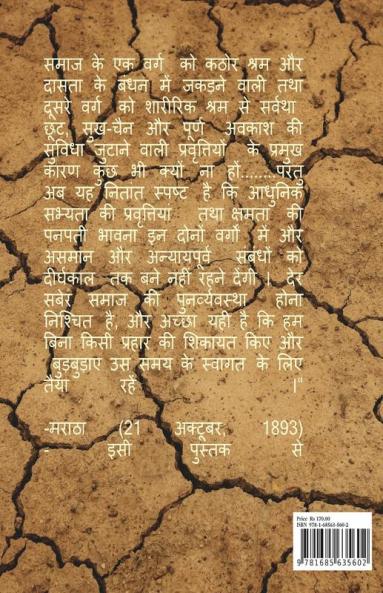 समाज के एक वर्ग को कठोर श्रम और
दासता के बंधन में जकड़ने वाली तथा
दूसरे वर्ग को शारीरिक श्रम से सर्वथा
छूट, सुख-चैन और पूर्ण अवकाश की
सुविधा जुटाने वाली प्रवृत्तियों के प्रमुख
कारण कुछ भी क्यों ना हों........परंतु
अब यह नितांत स्पष्ट है कि आधुनिक
सभ्यता की प्रवृत्तियां तथा क्षमता की
पनपती भावना इन दोनों वर्गों में और
असमान और अन्यायपूर्व संबंधों को
दीर्घकाल तक बने नहीं रहने देंगी । देर
सबेर समाज की पुनर्व्यवस्था होना
निश्चित है, और अच्छा यही है कि हम
बिना किसी प्रहार की शिकायत किए और
बुडबुडाए उस समय के स्वागत के लिए
तैया रहें ।"
-मराठा (21 अक्टूबर, 1893)
- इसी पुस्तक से
Price: Rs 170.00
ISBN 978-1-68563-560-2
9 781685 635602